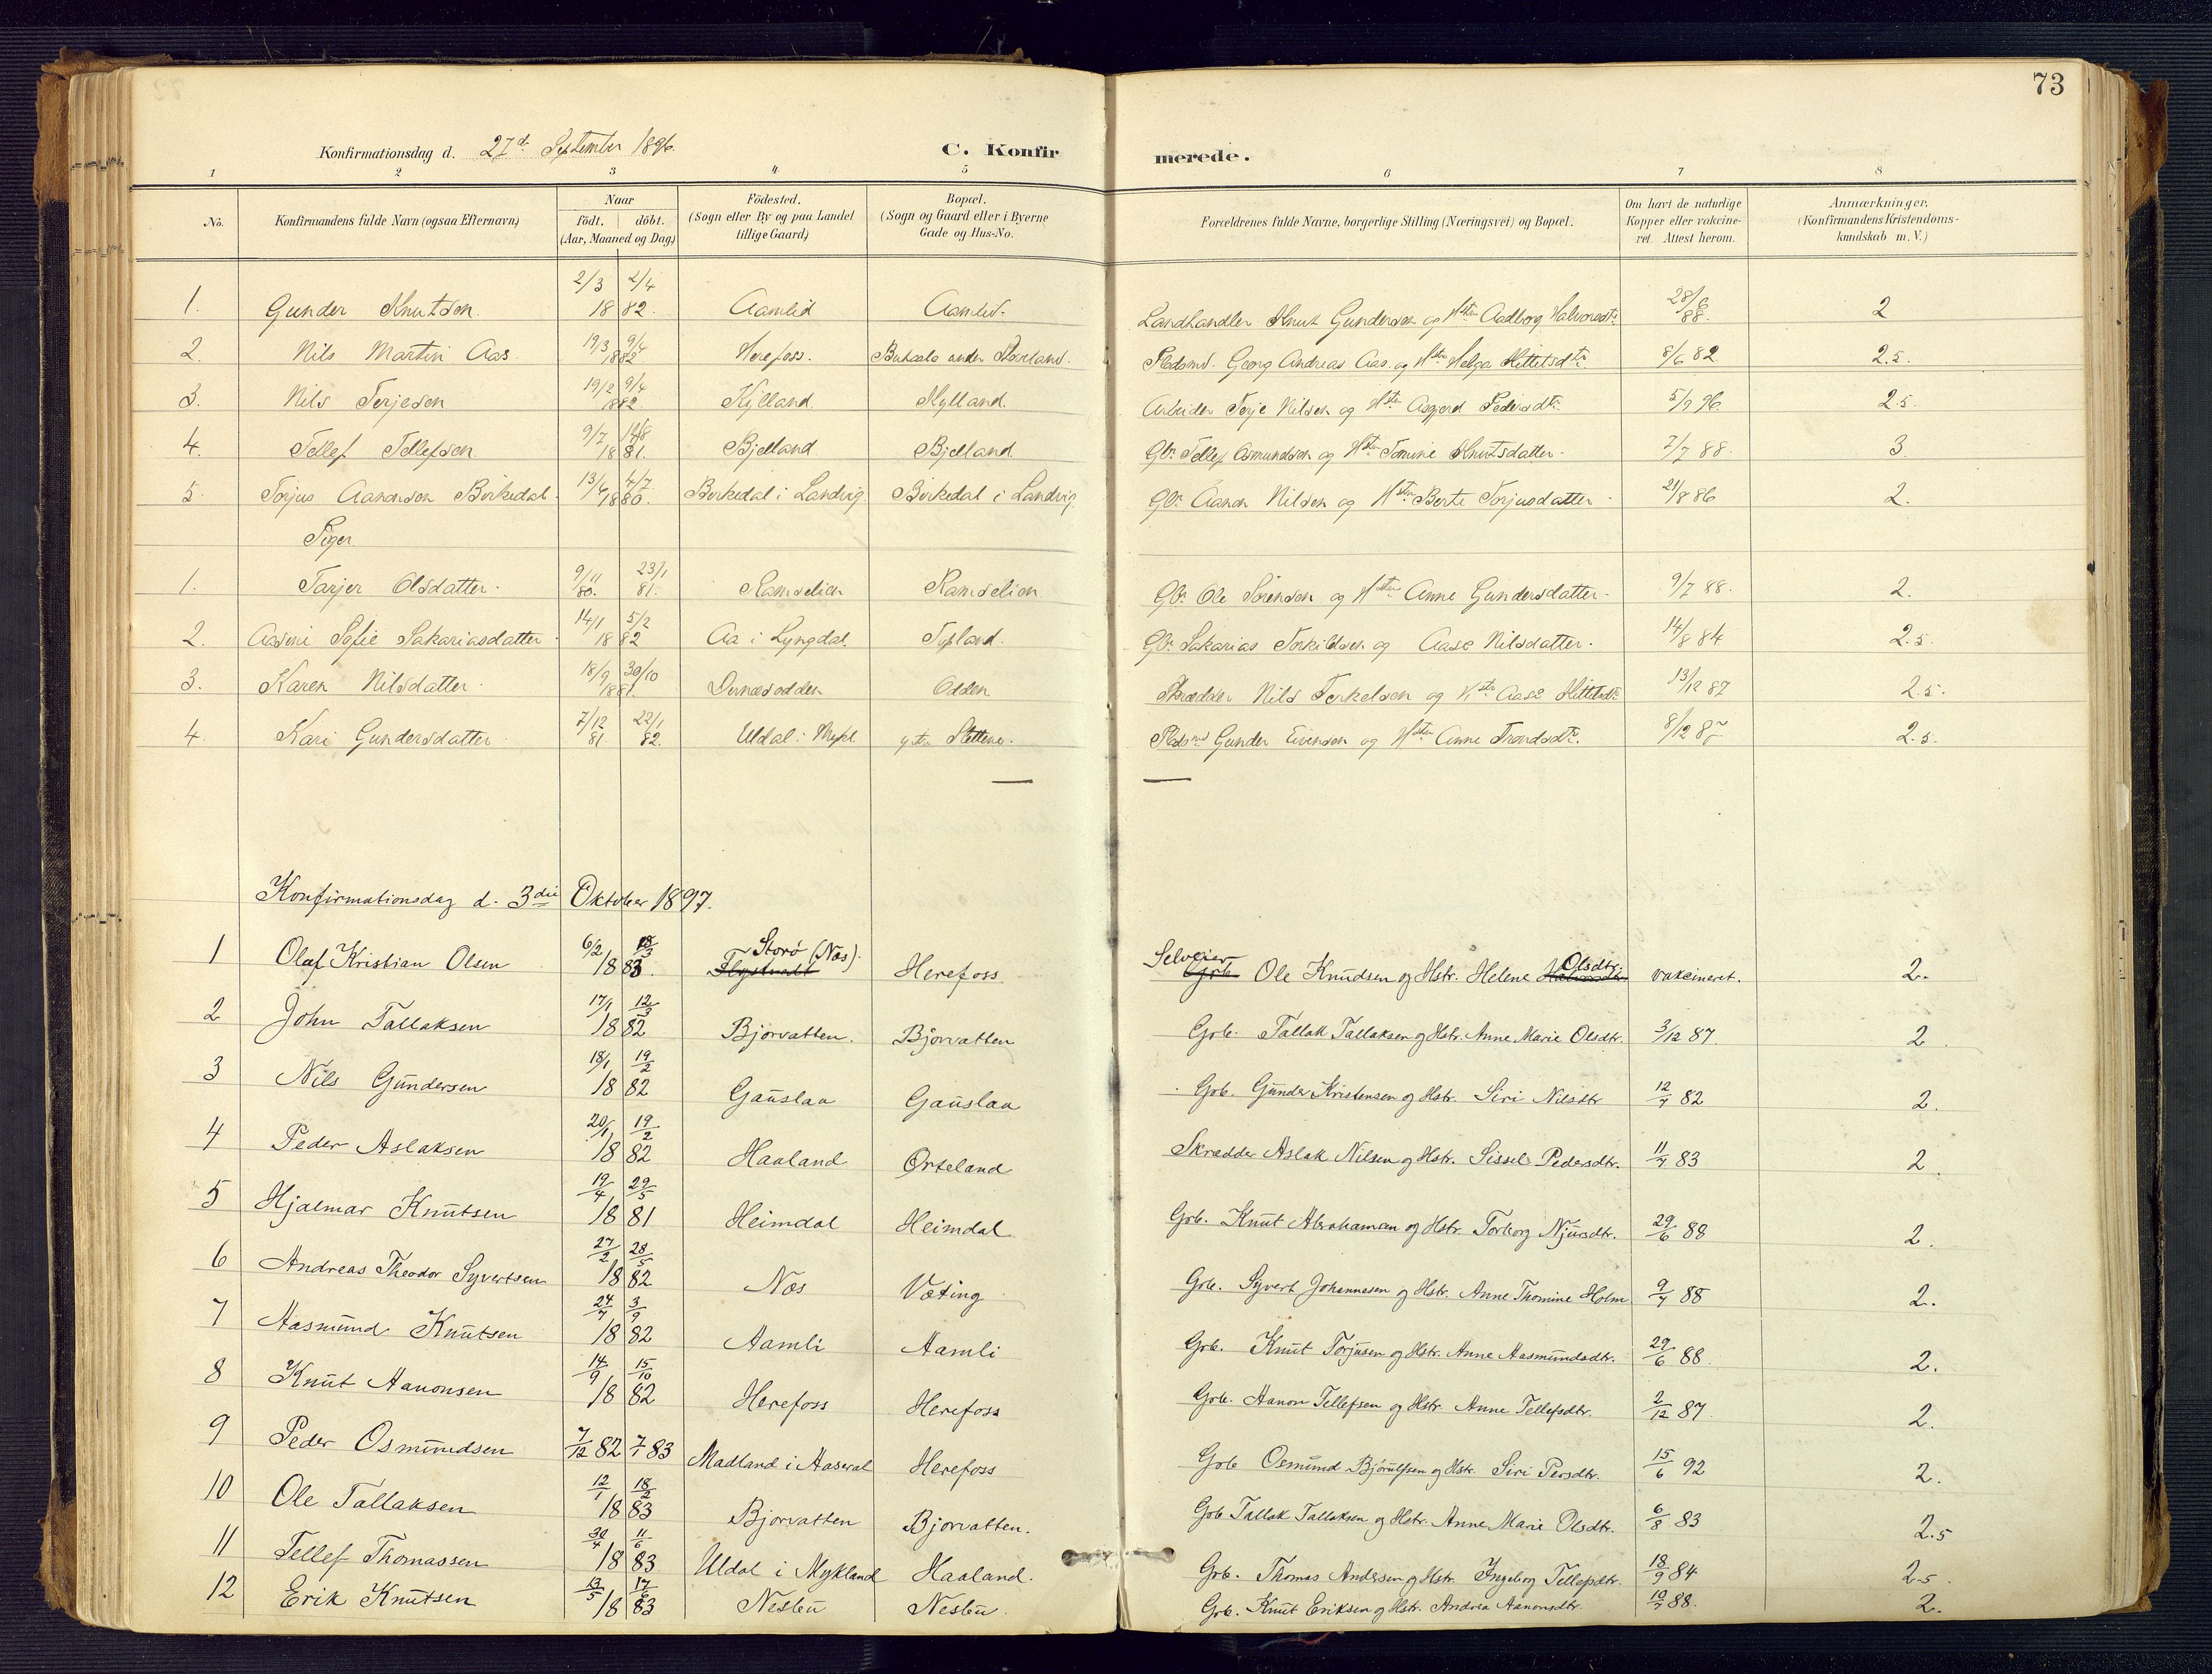 73
Konfirmationsdag d. 27de September 1896. C. Konfirmerede.
1 2 3 4 5 6 7 8
No. Konfirmandens fulde Navn (ogsaa Efternavn) Naar födt. döbt. (Aar, Maaned og Dag) Födested. (Sogn eller By og paa Landet tillige Gaard) Bopæl. (Sogn og Gaard eller i Byerne Gade og Hus-No. Forældrenes fulde Navne, borgerlige Stilling (Næringsvei) og Bopæl. Om havt de naturlige Kopper eller vakcineret. Attest herom. Anmærkninger. (Konfirmandens Kristendomskundskab m. V.)
1. Gunder Knutsen. 2/3 2/4 1882. Aamlid Aamlid. Landhandler Knut Gundersen og Hstr Aadborg Halvorsdtr. 28/6 88. 2
2. Nils Martin Aas 19/3 9/4 1882 Herefoss. under Skreland. Pladsmd. Georg Andreas Aas. og Hstr Helga Kittelsdtr. 8/6 82 2.5.
3. Nils Terjesen 19/2 9/4 1882. Kylland. Kylland. Arbeider Terje Nilsen og Hstr Asgjerd Pedersdtr. 5/9 96. 2.5.
4. Tellef Tellefsen 9/7 14/8 1881. Bjelland Bjelland. Gbr. Tellef Asmundsen og Hstr Tomine Knutsdatter. 7/7 88. 3.
5. Torjus Aanonsen Birkedal. 13/6 4/7 1880. Birkedal i Landvig. Birkedal i Landvig. Gbr. Aanon Nilsen og Hstr Berte Torjusdatter. 21/8 86 2.
Piger
1. Tarjer Olsdatter. 9/11 80. 23/1 81. Ramselien Ramselien Gbr. Ole Sörensen og Hstr Anne Gundersdatter. 9/7 88. 2.
2. Aaseni Sofie Sakariasdatter 14/1 5/2 1882 Aa i Lyngdal. Topland. Gbr. Sakarias Torkildsen og Aase Nilsdatter. 14/8 84 2.5.
3. Karen Nilsdatter. 18/9 30/10 1881. Dernæsodden Odden Skrædder Nils Terkelsen og Hstr Aase Kittelsdtr. 13/12 87 2.5.
4. Kari Gundersdatter. 7/12 81. 22/1 82. Uldal i Mykl. ytre Slettene. Pladsmd Gunder Evensen og Hstr Anne Trondsdtr. 8/12 87 2.5.
Konfirmationsdag d. 3die Oktober 1897.
1 Olaf Kristian Olsen 6/2 18/3 1883. Storø (Næs). Herefoss. Selveier Ole Knudsen og Hstr. Helene Olsdtr. vakcineret. 2.
2 John Tallaksen 17/1 12/3 1882 Bjorvatten. Bjorvatten Grb. Tallak Tallaksen og Hstr. Anne Marie Olsdtr. 3/12 87. 2.
3 Nils Gundersen 18/1 19/2 1882 Gauslaa Gauslaa Grb. Gunder Kristensen og Hstr. Siri Nilsdtr 12/7 82 2.
4 Peder Aslaksen 20/1 19/2 1882 HaalandØrteland Skrædder Aslak Nilsen og Hstr. Sissel Pedersdtr. 11/7 83 2.
5 Hjalmar Knutsen 19/4 29/5 1881 Heimdal Heimdal Grb. Knut Abrahamsen og Hstr. Torborg Njursdtr. 29/6 88 2.
6 Andreas Theodor Syvertsen 27/2 28/5 1882 Næs Væting Grb. Syvert Johannesen og Hstr. Anne Thomine Holm 9/7 88 2.
7 Aasmund Knutsen 24/7 3/9 1882 Aamli Aamli Grb. Knut Torjusen og Hstr. Anne Aasmundsdtr. 29/6 88. 2.
8 Knut Aanonsen 14/9 15/10 1882 Herefoss Herefoss Grb. Aanon Tellefsen og Hstr. Anne Tellefsdtr. 2/12 87. 2.
9 Peder Osmundsen 7/12 82 7/1 83 Madland i Aaseral Herefoss Grb Osmund Bjorulfsen og Hstr. Siri Persdtr. 15/6 92 2.
10 Ole Tallaksen 12/1 18/2 1883 Bjorvatten Bjorvatten. Grb Tallak Tallaksen og Hstr. Anne Marie Olsdtr. 6/8 83 2.5
11 Tellef Thomassen 30/4 11/6 1883 Uldal i Mykland Haaland. Grb. Thomas Andersen og Hstr. Ingeborg Tellefsdtr. 18/9 84 2.5.
12 Erik Knutsen 13/5 17/6 1883 Neslen Neslen. Grb. Knut Eriksen og Hstr. Andrea Aanonsdtr. 10/7 88. 2.